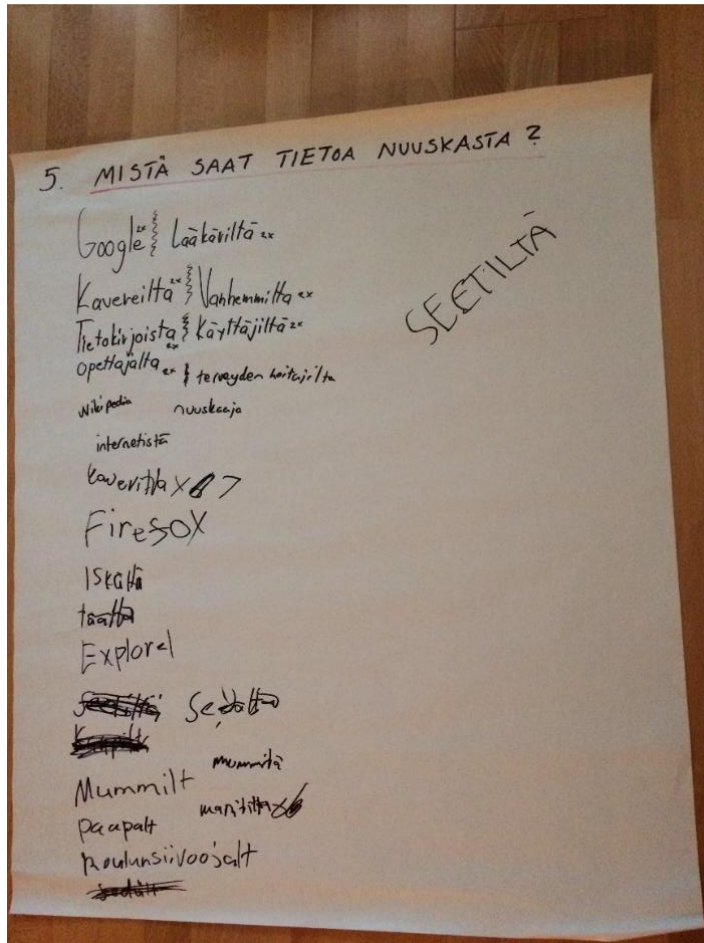 5. MISTÄ SAAT TIETOA NUUSKASTA?
Google 2x Lääkäriltä 2x
SEETILTÄ
Kavereilta 2x Vanhemmilta 2x
Tietokirjoista 2x Käyttäjiltä 2x
opettajalta 2x terveyden hoitajilta
Wikipedia nuuskaaja
internetistä
kaverilta x 7
Firefox
Iskältä
täältä
Explorel
mummiltä
Mummilt
paapalt
koulunsiivoojalt